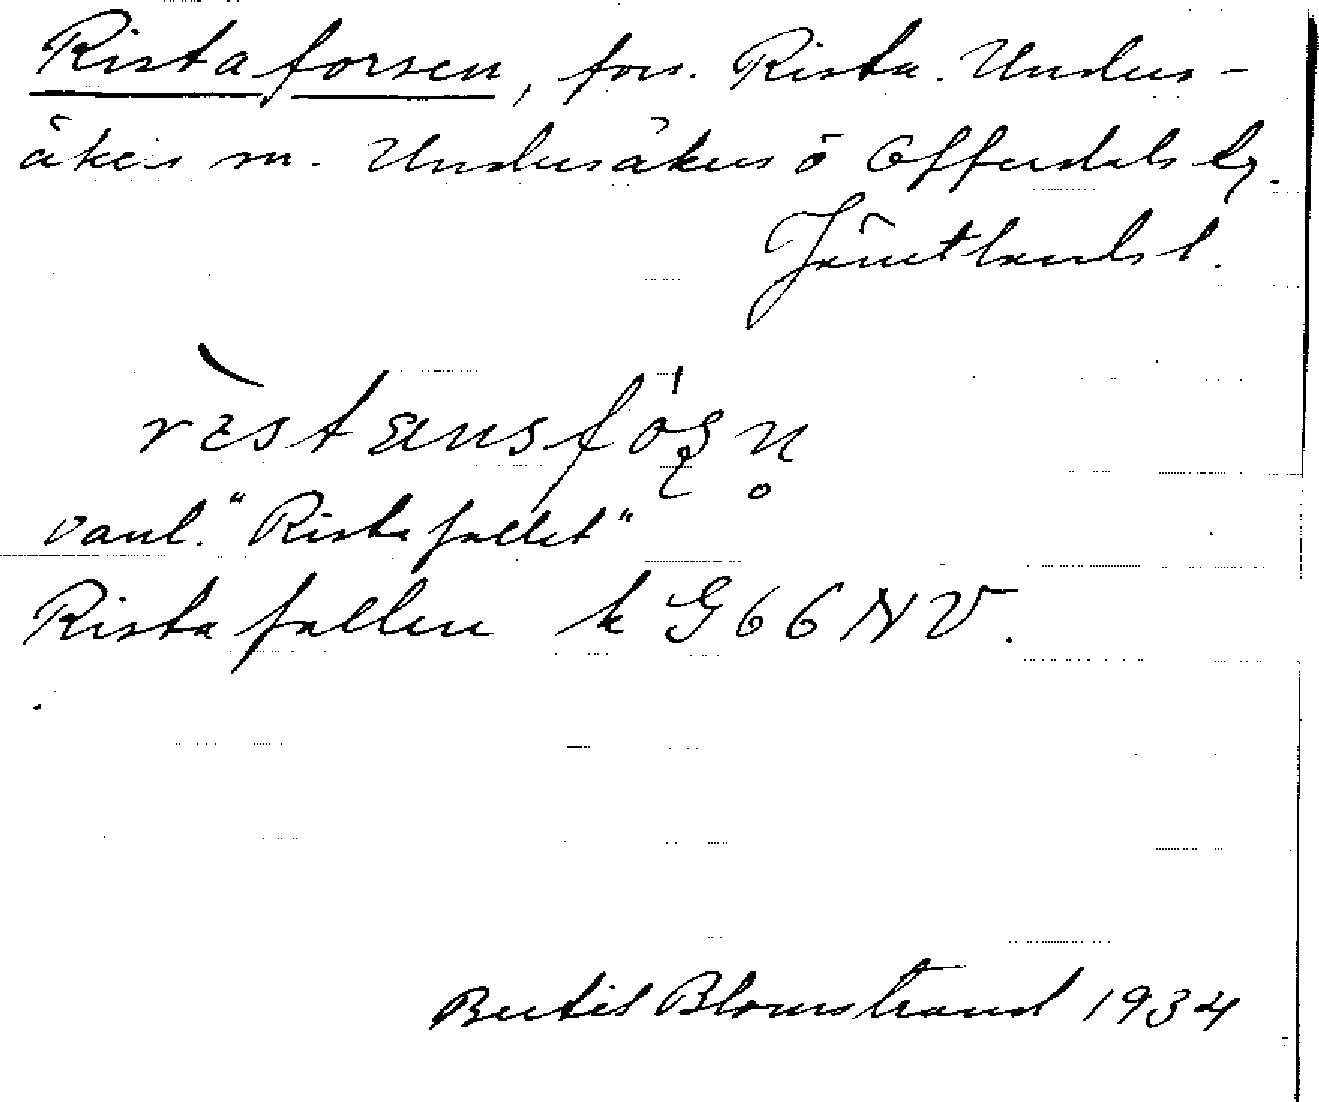 Ristaforsen, fors. Rista. Unders-
åkers sn. Undersåkers o Offerdals tg.
Jämtlands l.
vanl. "Ristafallet"
Ristafallen k G66NV.
Bertil Blomstrand 1934